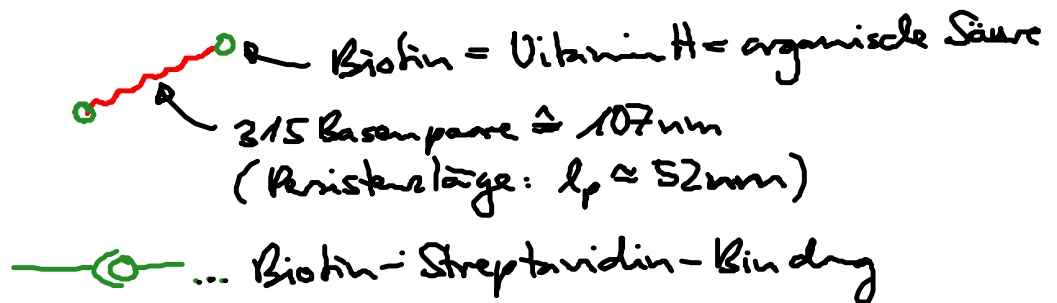 Biotin = Vitamin H = organische Säure
315 Basenpaare ≙ 107nm
(Persistenzläge: lₚ ≈ 52nm)
... Biotin-Streptavidin-Bindung